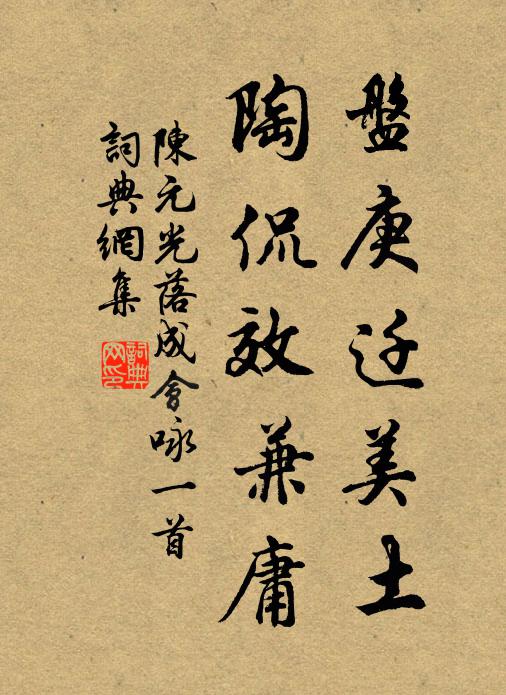 盤庚迁美土
陶侃效兼庸
陳元光落成會詠一首
詞典網集
詞典网印